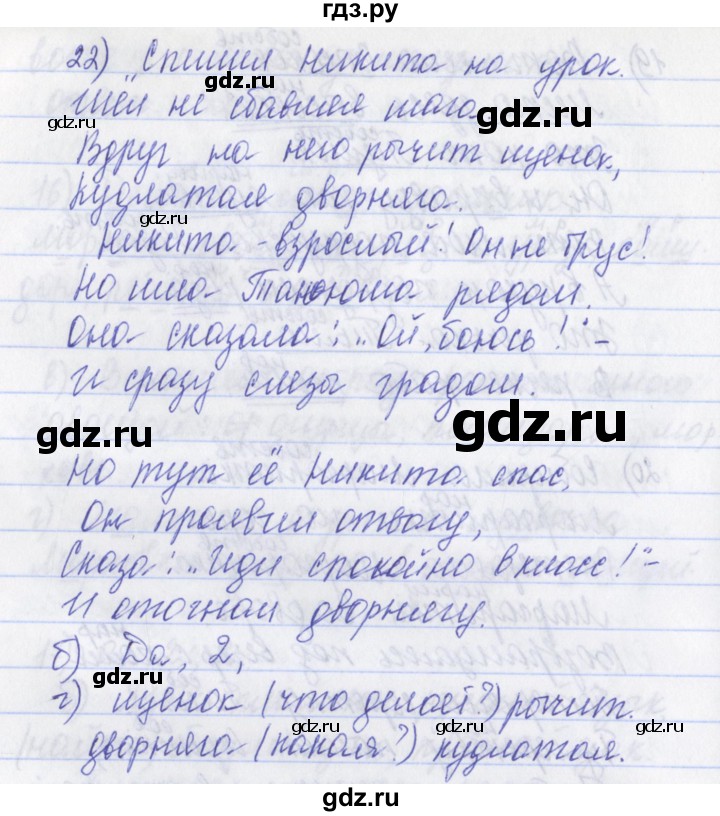 гдз.ру
22) Спешил Никита на урок.
Шёл не сбавляя шага.
Вдруг на него рычит щенок,
Кудлатая дворняга.
Никита - взрослый! Он не трус!
Но шла Танюша рядом.
Она сказала: „Ой, боюсь!" -
И сразу слезы градом.
Но тут её Никита спас,
Он проявил отвагу,
Сказал: „Иди спокойно в класс!" -
И отогнал дворнягу.
б) Да, 2,
г) щенок (что делает?) рычит.
дворняга (какая?) кудлатая.
gdz.ru
gdz.ru
gdz.ru
gdz.ru
gdz.ru
gdz.ru
gdz.ru
gdz.ru
gdz.ru
gdz.ru
gdz.ru
gdz.ru
gdz.ru
gdz.ru